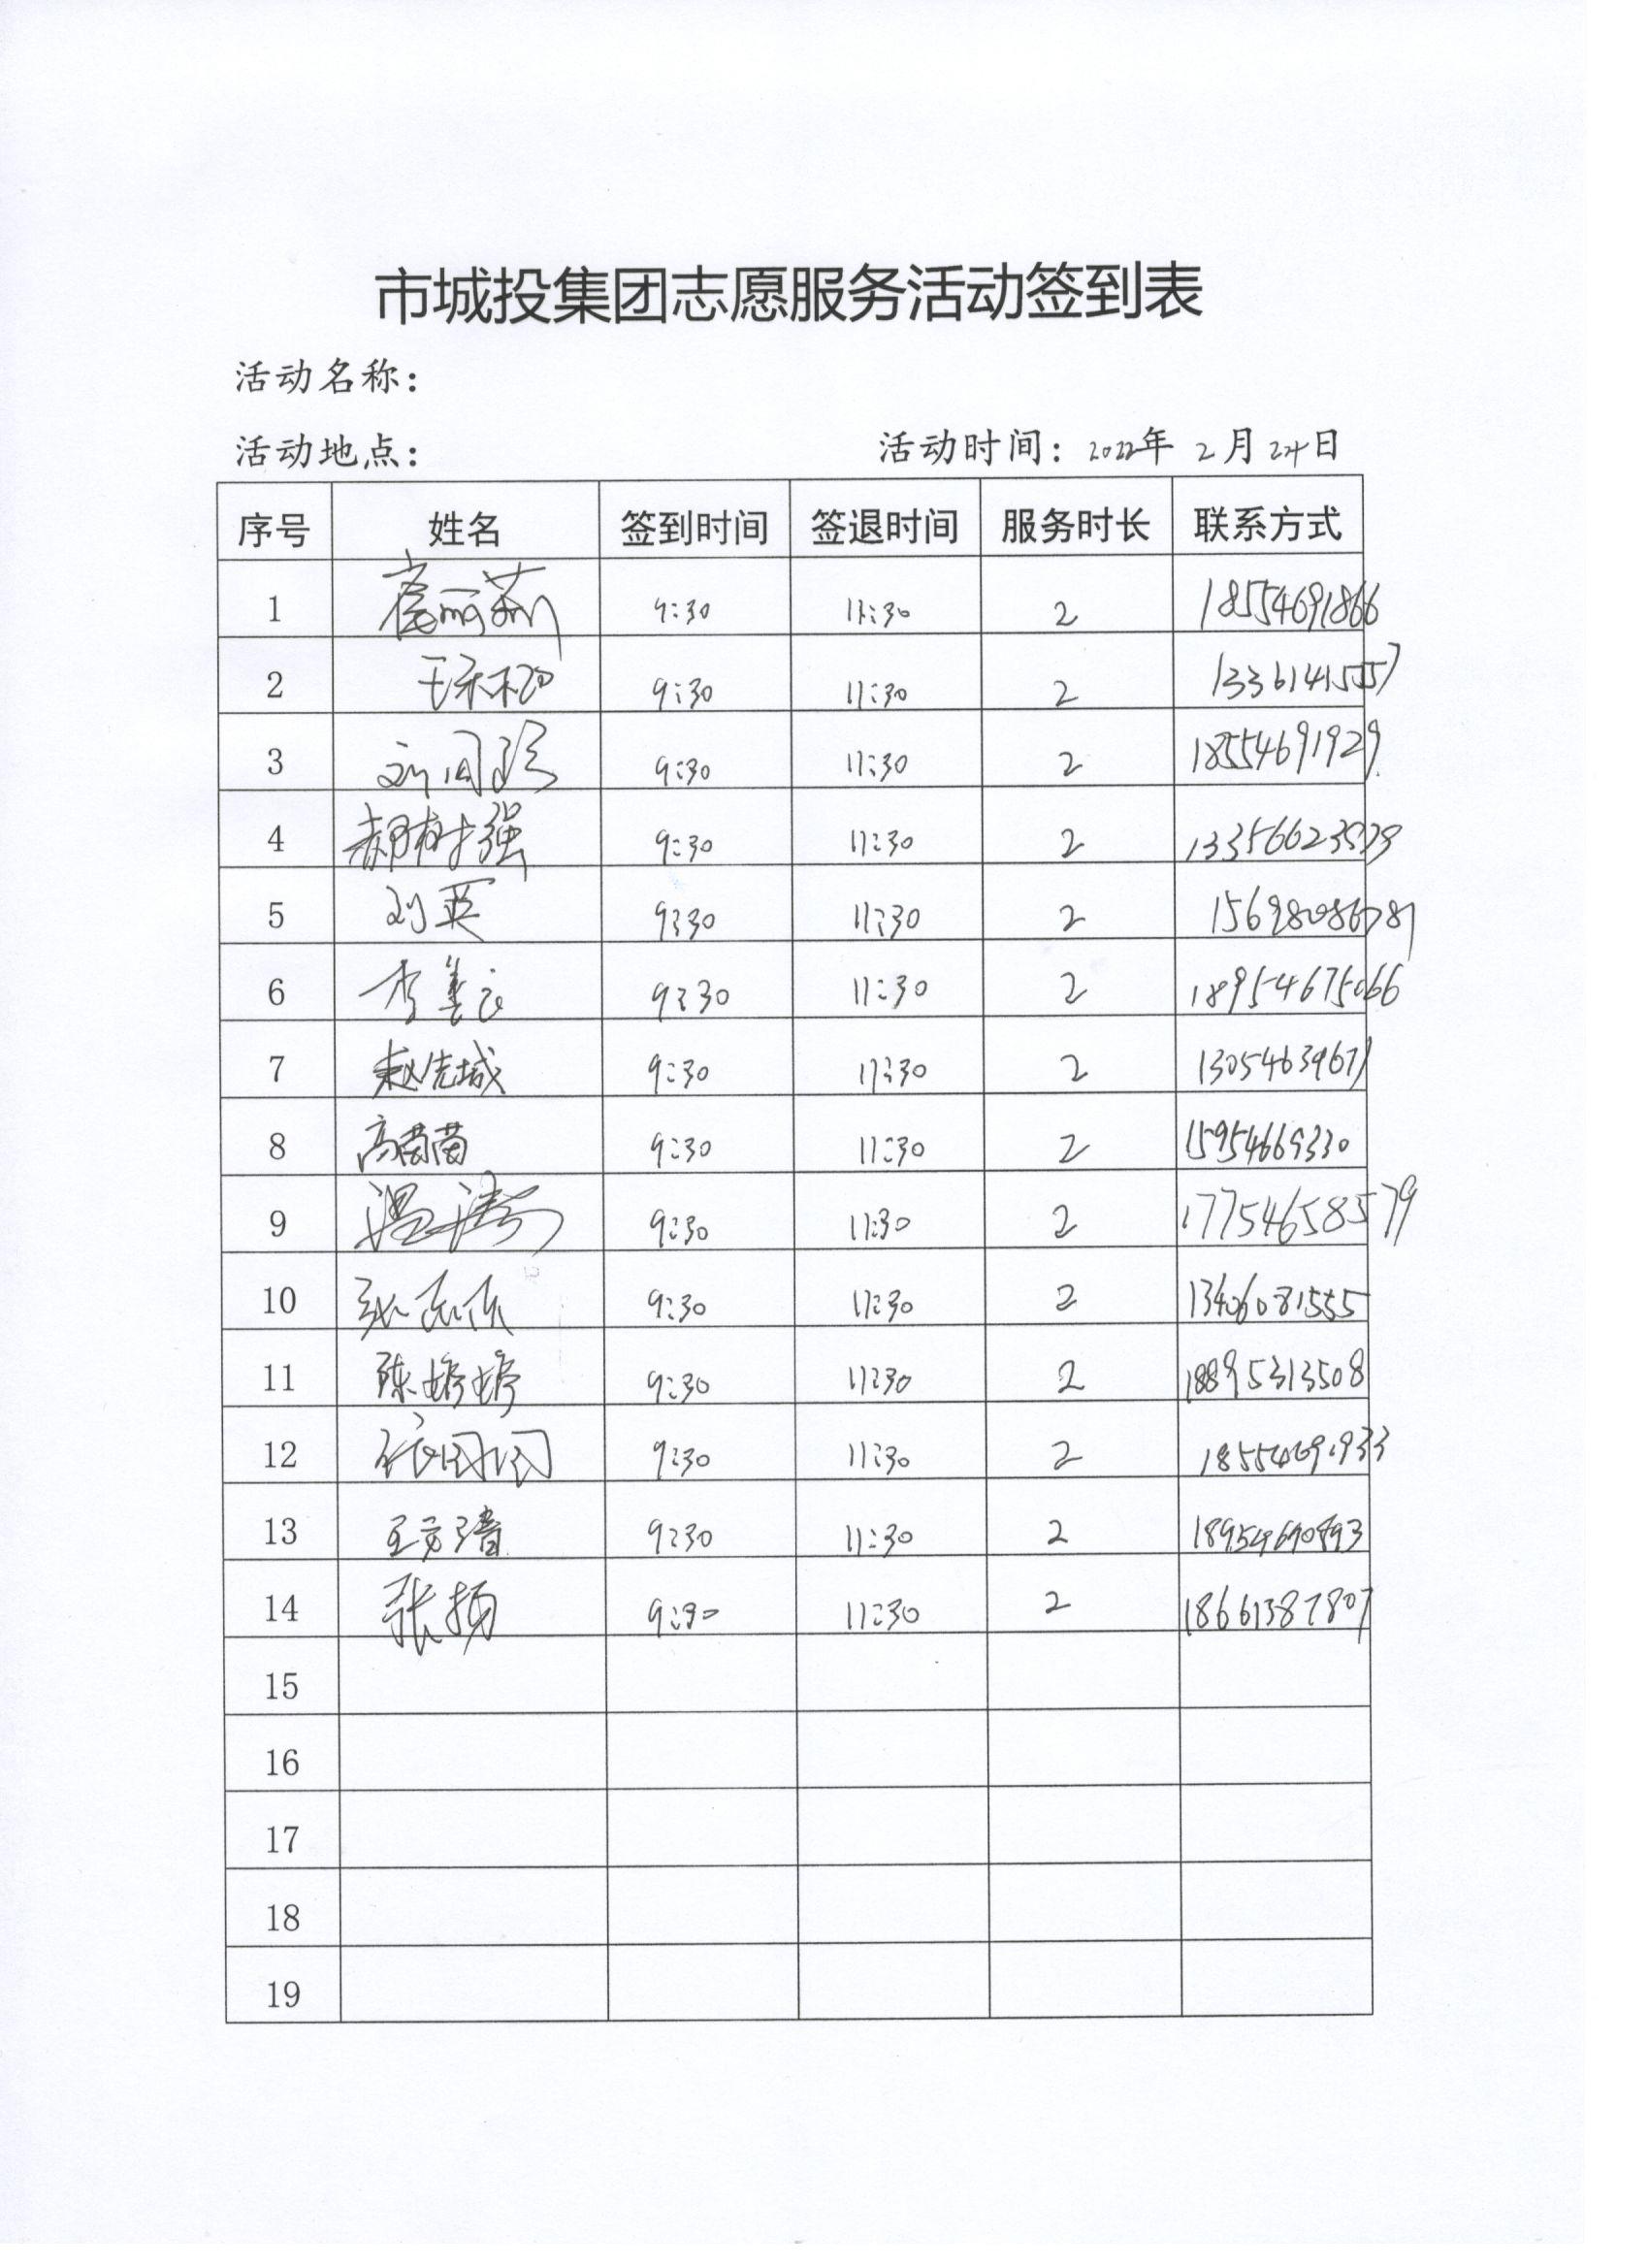 市城投集团志愿服务活动签到表
活动名称：
活动地点： 活动时间：2022年 2月24日
序号 姓名 签到时间 签退时间 服务时长 联系方式
1 9:30 11:30 2 18554691866
2 9:30 11:30 2 13361415557
3 9:30 11:30 2 18554691929
4 郝树强 9:30 11:30 2
5 刘英 9:30 11:30 2 15698086781
6 9:30 11:30 2 18954675066
7 赵先城 9:30 11:30 2 13054639671
8 高茵茵 9:30 11:30 2 15954669330
9 温涛 9:30 11:30 2 17754658579
10 9:30 11:30 2 13406081555
11 陈婷婷 9:30 11:30 2 18895313508
12 9:30 11:30 2 18554691933
13 9:30 11:30 2 18954690893
14 张扬 9:30 11:30 2 18661387807
15
16
17
18
19